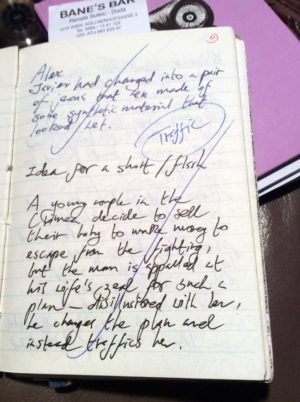 BANE'S BAR
1010 WIEN, KÖLLNERHOFGASSE 3
Alex
Javier had changed into a pair
of jeans that were made of
some synthetic material that
looked wet.
Traffic
Idea for a short/flash
A young couple in the
Crimea decide to sell
their baby to make money to
escape from the fighting,
but the man is appalled at
his wife's zeal for such a
plan – disillusioned with her,
he changes the plan and
instead traffics her.